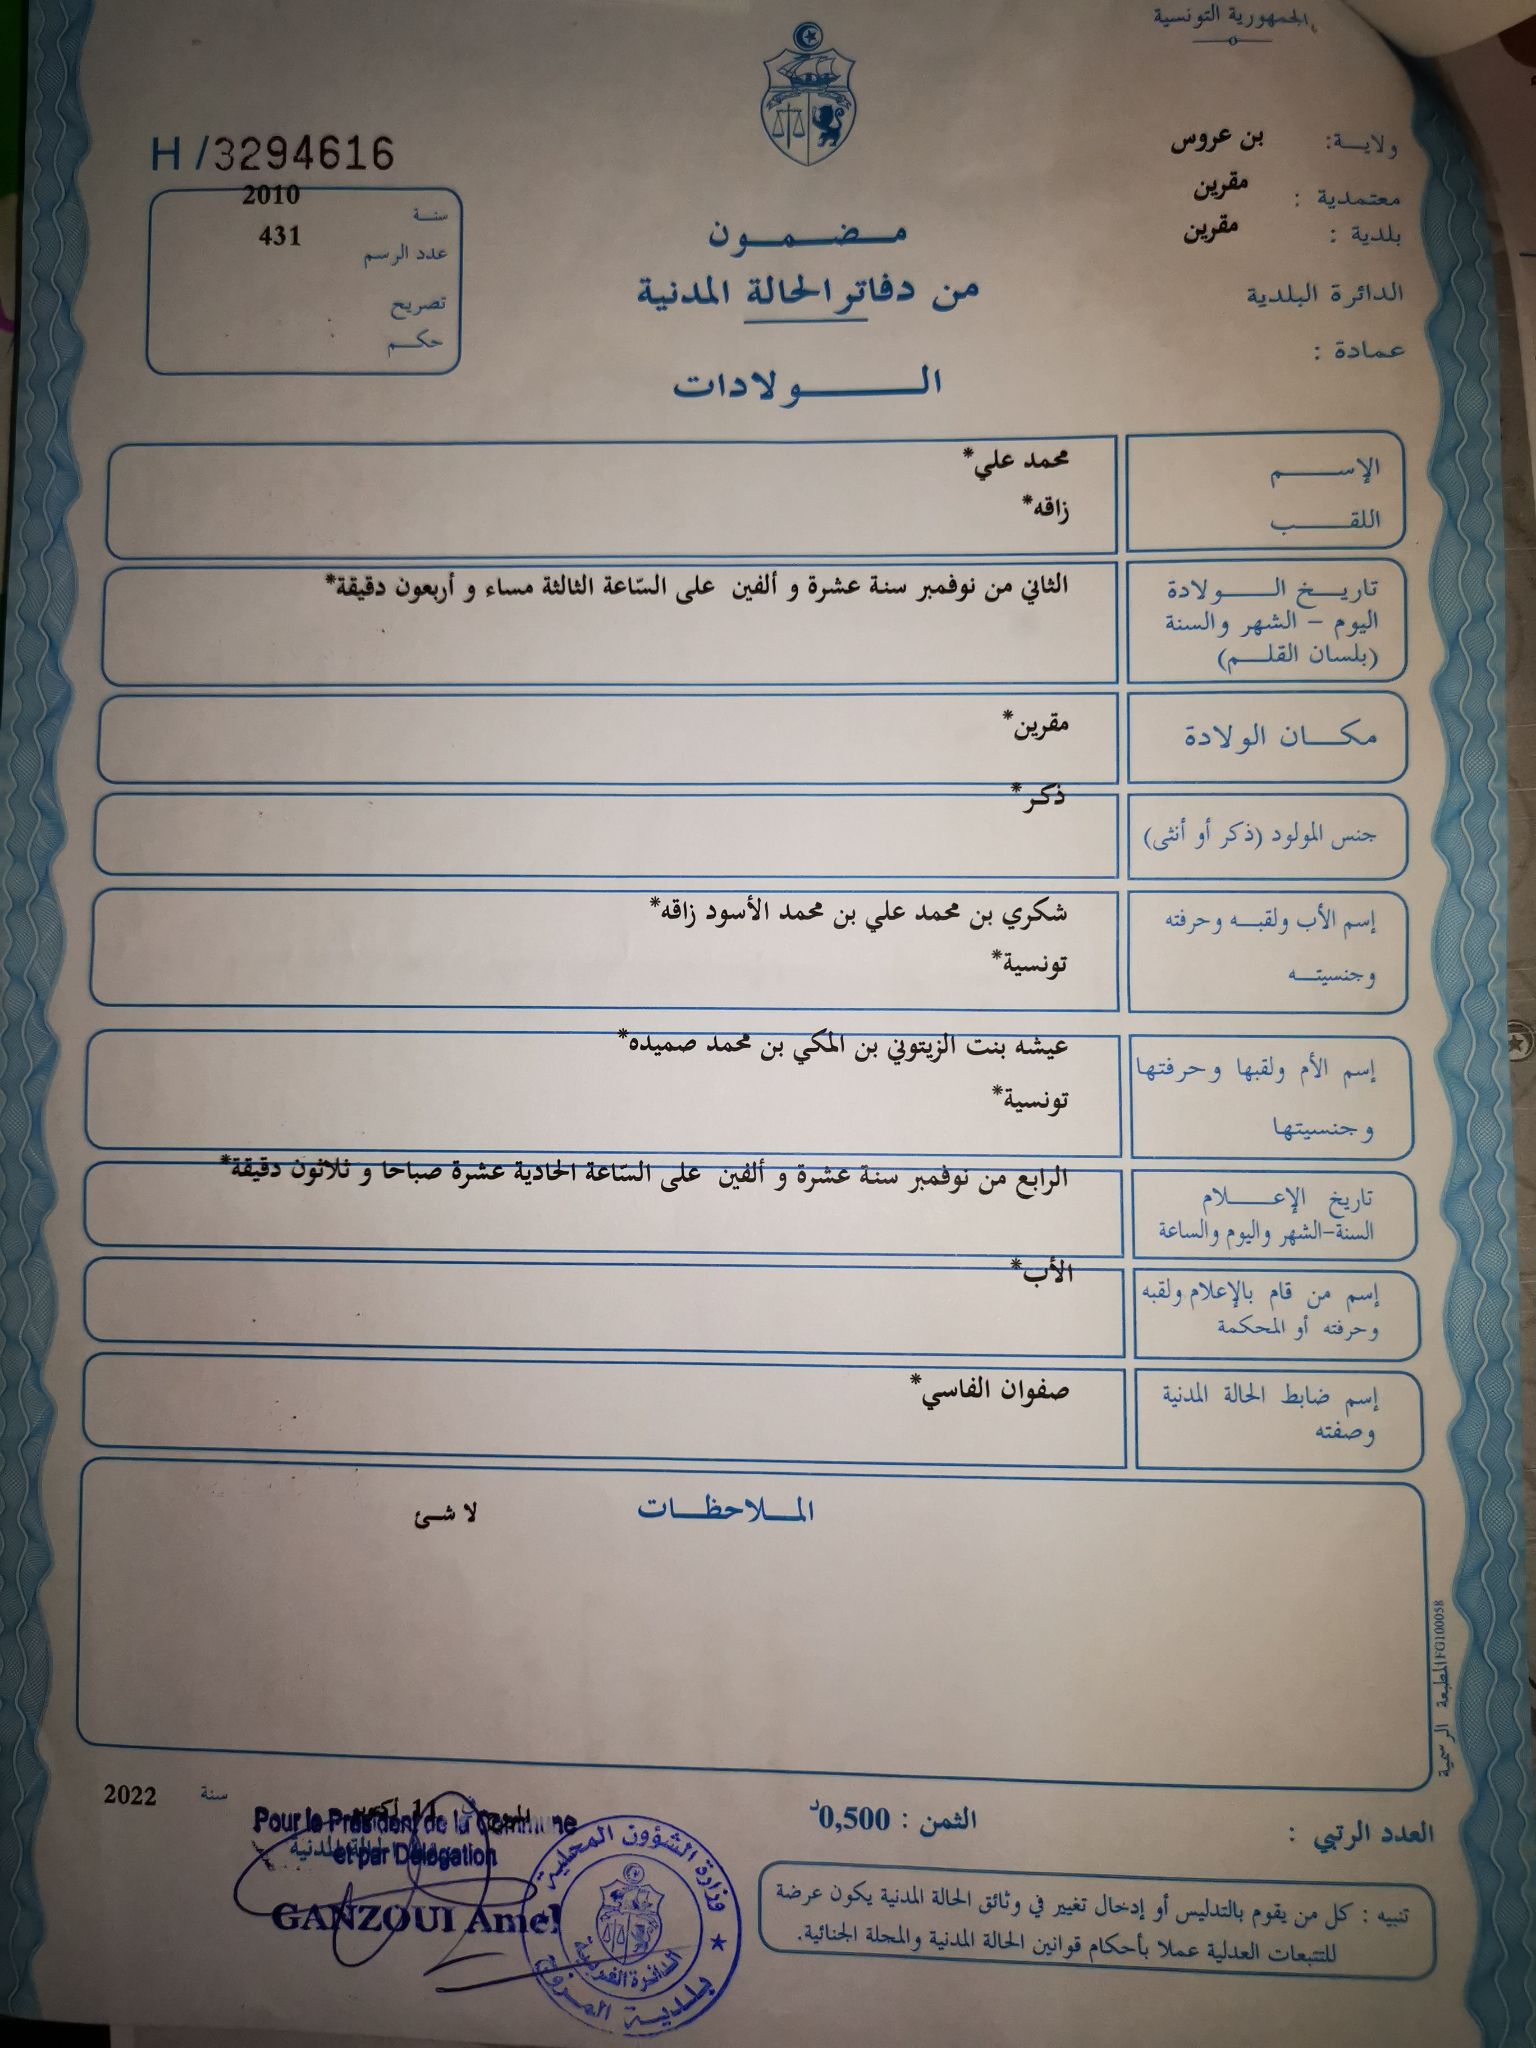 الجمهورية التونسية
ولايـة: بن عروس
معتمدية : مقرين
بلدية : مقرين
الدائرة البلدية
عمادة :
H /3294616
سنة 2010
عدد الرسم 431
تصريح
حكم
مضمون
من دفاتر الحالة المدنية
الولادات
الإسم محمد علي*
اللقب زاقه*
تاريخ الولادة
اليوم - الشهر والسنة
(بلسان القلم)
الثاني من نوفمبر سنة عشرة و ألفين على السّاعة الثالثة مساء و أربعون دقيقة*
مكان الولادة مقرين*
جنس المولود (ذكر أو أنثى) ذكر*
إسم الأب ولقبه وحرفته
وجنسيته
شكري بن محمد علي بن محمد الأسود زاقه*
تونسية*
إسم الأم ولقبها وحرفتها
وجنسيتها
عيشه بنت الزيتوني بن المكي بن محمد صميده*
تونسية*
تاريخ الإعلام
السنة-الشهر واليوم والساعة
الرابع من نوفمبر سنة عشرة و ألفين على السّاعة الحادية عشرة صباحا و ثلاثون دقيقة*
إسم من قام بالإعلام ولقبه
وحرفته أو المحكمة
الأب*
إسم ضابط الحالة المدنية
وصفته
صفوان الفاسي*
الملاحظات
لا شئ
المطبعة الرسمية FG10005B
العدد الرتبي :
الثمن : 0,500د
11 أكتوبر
سنة 2022
Pour le Président de la Commune
et par Délégation
GANZOUI Amel
وزارة الشؤون المحلية
بلدية المروج
تنبيه : كل من يقوم بالتدليس أو إدخال تغيير في وثائق الحالة المدنية يكون عرضة
للتتبعات العدلية عملا بأحكام قوانين الحالة المدنية والمجلة الجنائية.